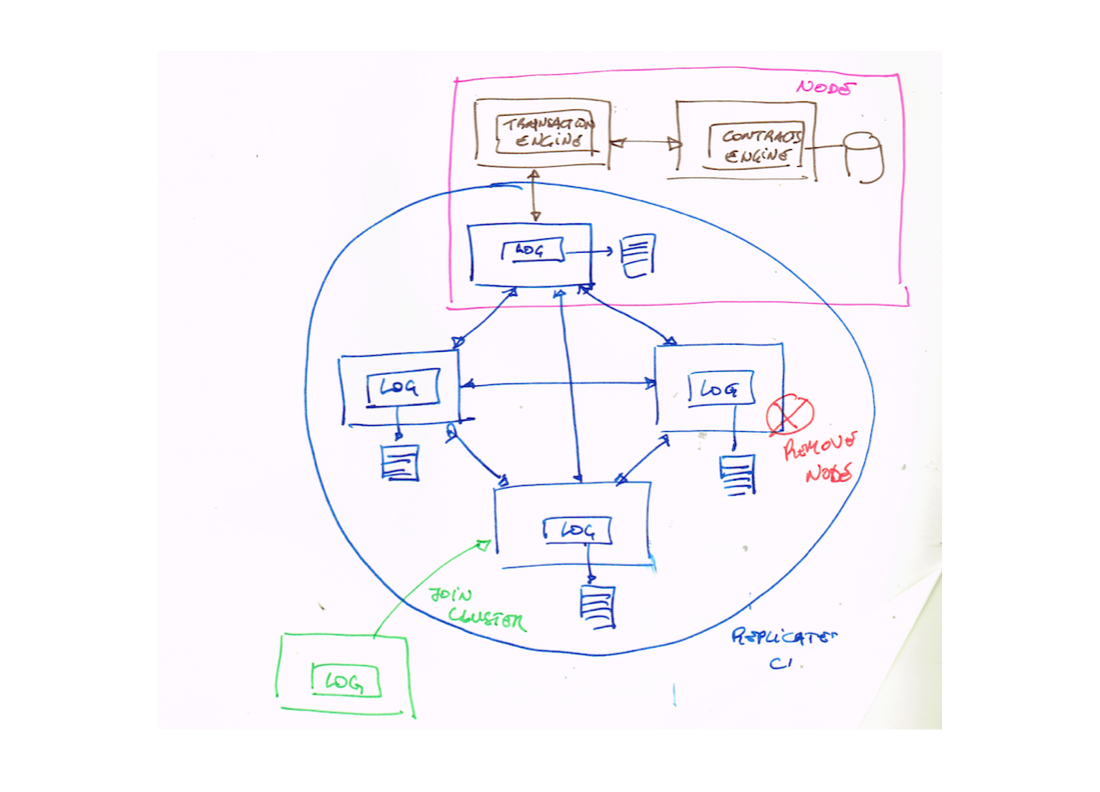 NODE
TRANSACTION
ENGINE
CONTRACTS
ENGINE
LOG
LOG
LOG
REMOVE
NODE
LOG
JOIN
CLUSTER
REPLICATED
LOG